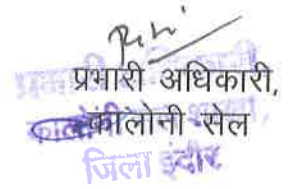 प्रभारी अधिकारी,
कालोनी सेल
जिला इंदौर